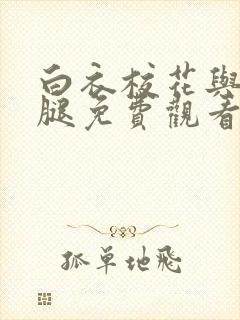 白衣校花與
腿免費觀看
孤單地飛